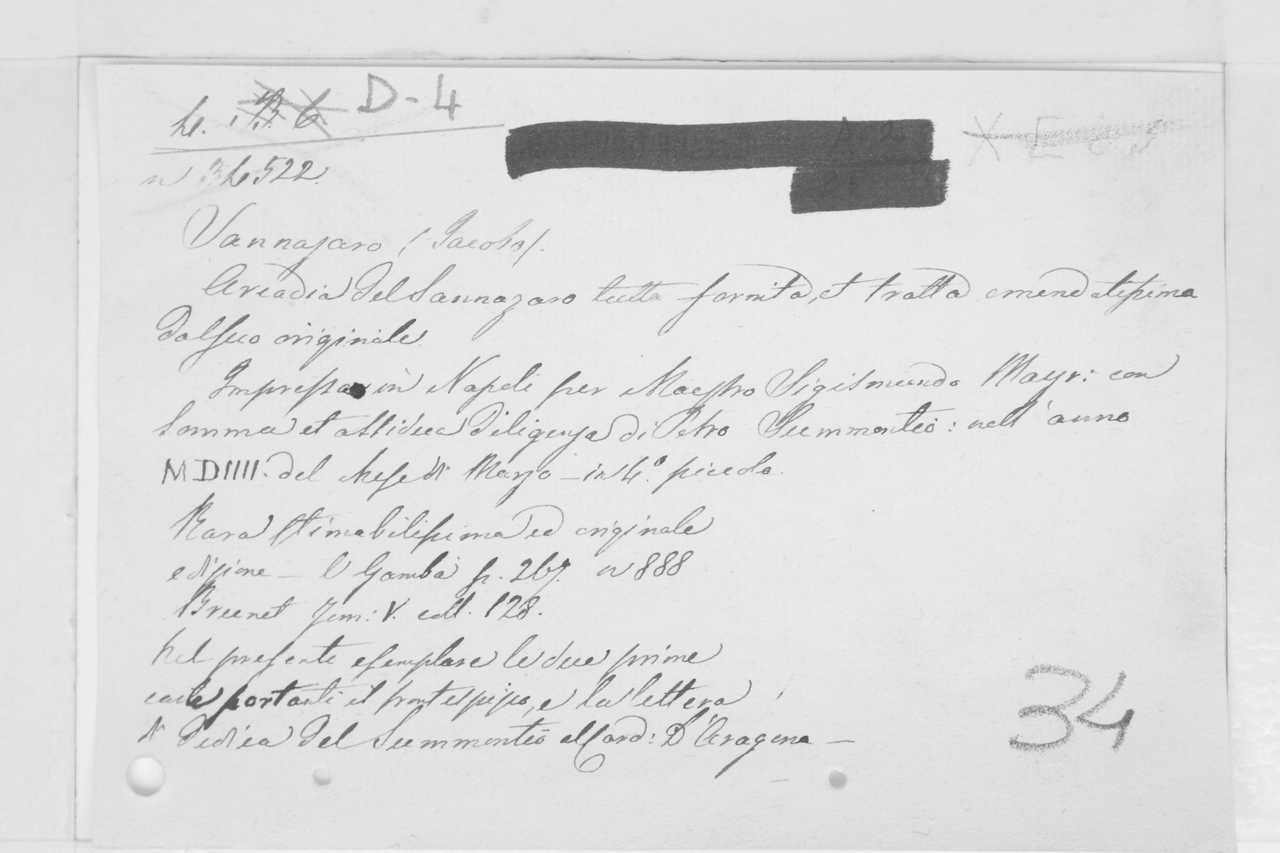 D-4
n 36522
Sannazaro (Jacobo).
Arcadia del Sannazaro tutta fornita, et tratta emendatissima
dal suo originale
Impressa in Napoli per Maestro Sigismundo Mayr: con
somma et assidua diligenza di Petro Summonteo: nell'anno
MDIIII. del Mese di Marzo – in 4.º piccolo.
Rara stimabilissima ed originale
edizione – Gamba p. 267. n 888
Brunet Tom: V. coll. 128.
Nel presente esemplare le due prime
carte portanti il frontespizio, e la lettera
di dedica del Summonteo al Card: D'Aragona –
34